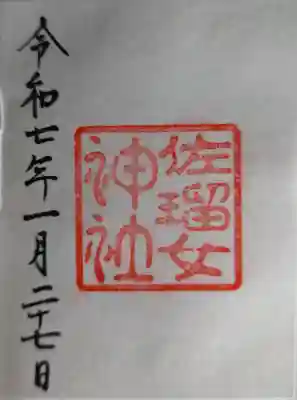 佐瑠女
神社
令和七年一月二十七日